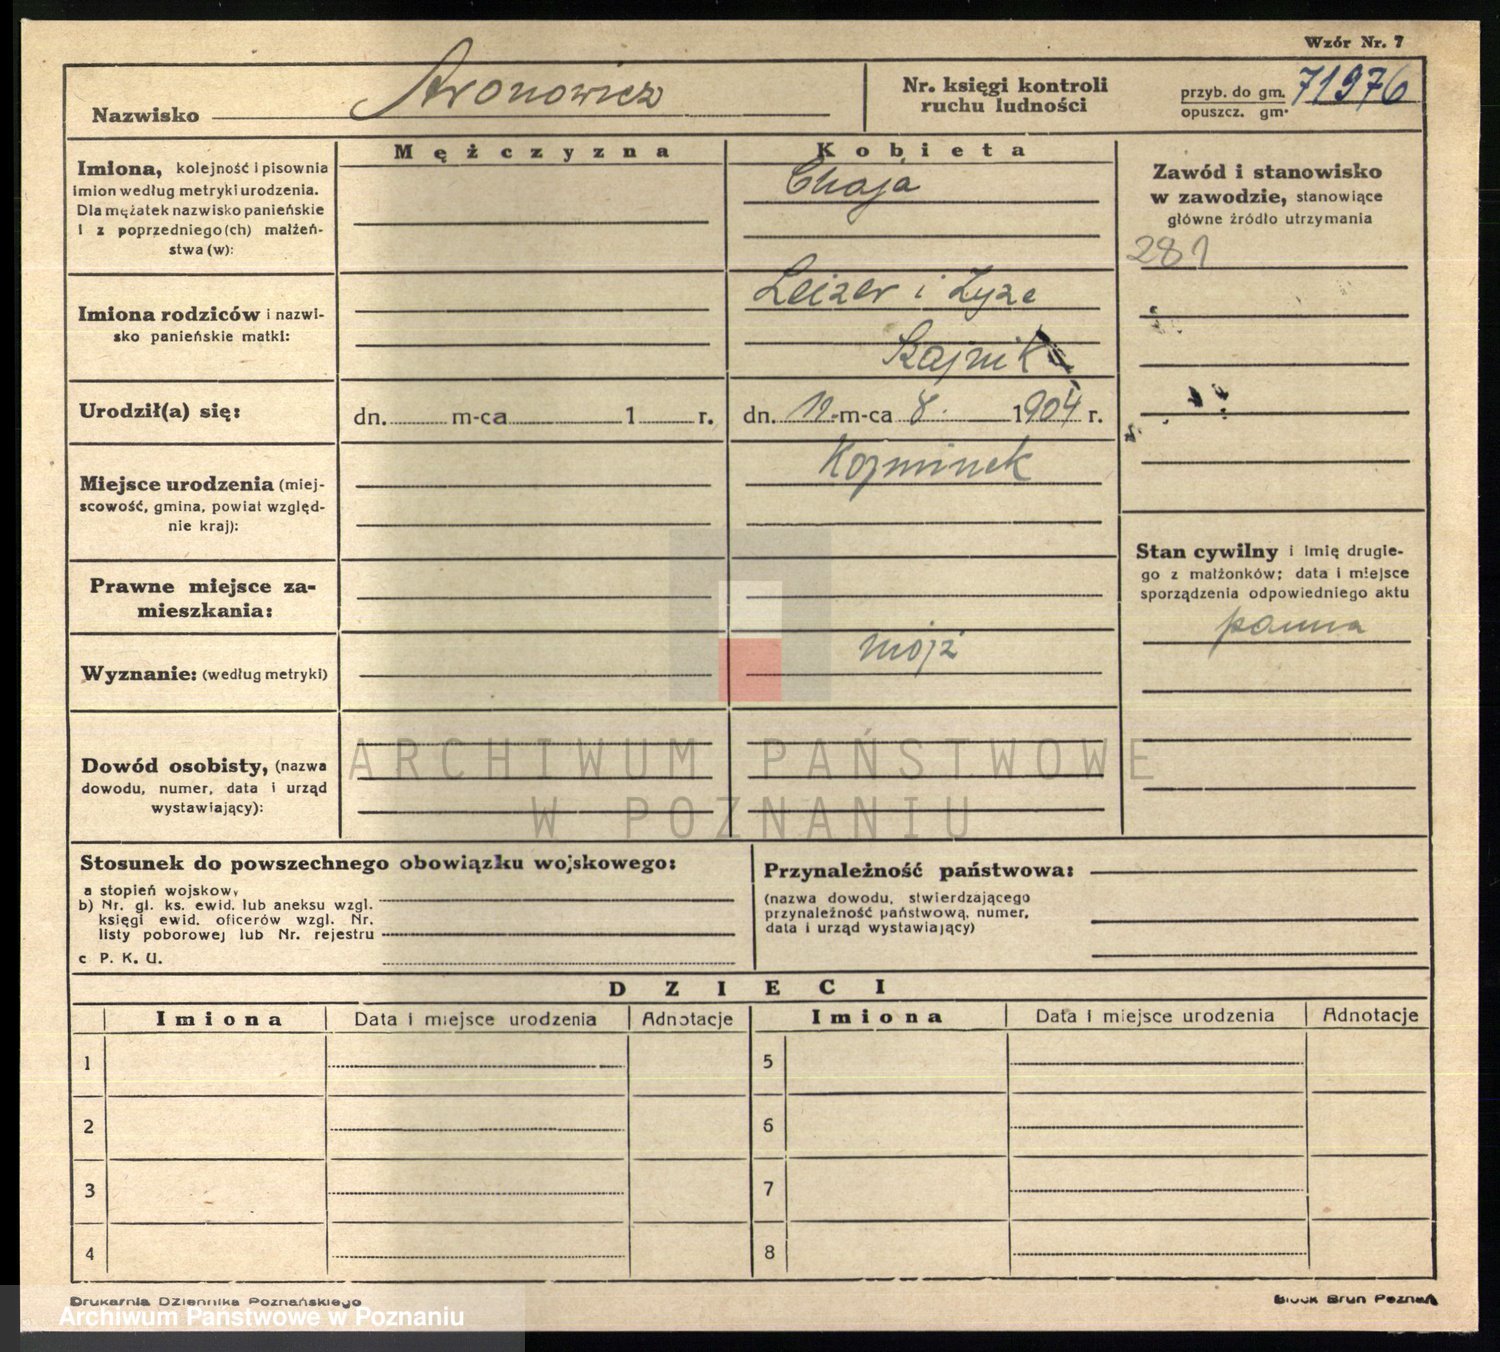 Wzór Nr. 7
Nazwisko Aronowicz
Nr. księgi kontroli
ruchu ludności
przyb. do gm. 71976
opuszcz. gm.
Mężczyzna
Kobieta
Imiona, kolejność i pisownia
imion według metryki urodzenia.
Dla mężatek nazwisko panieńskie
i z poprzedniego(ch) małżeń-
stwa (w):
Chaja
Zawód i stanowisko
w zawodzie, stanowiące
główne źródło utrzymania
281
Imiona rodziców i nazwi-
sko panieńskie matki:
Leizer i Zyze
Szajnik
Urodził(a) się:
dn. m-ca 1 r.
dn. 12. m-ca 8. 1904 r.
Miejsce urodzenia (miej-
scowość, gmina, powiat względ-
nie kraj):
Kozminek
Stan cywilny i imię drugie-
go z małżonków; data i miejsce
sporządzenia odpowiedniego aktu
panna
Prawne miejsce za-
mieszkania:
Wyznanie: (według metryki)
mojż
Dowód osobisty, (nazwa
dowodu, numer, data i urząd
wystawiający):
ARCHIWUM PAŃSTWOWE
W POZNANIU
Stosunek do powszechnego obowiązku wojskowego:
a stopień wojskowy
b) Nr. gł. ks. ewid. lub aneksu wzgl.
księgi ewid. oficerów wzgl. Nr.
listy poborowej lub Nr. rejestru
c P. K. U.
Przynależność państwowa:
(nazwa dowodu, stwierdzającego
przynależność państwową, numer,
data i urząd wystawiający)
DZIECI
Imiona Data i miejsce urodzenia Adnotacje Imiona Data i miejsce urodzenia Adnotacje
1 5
2 6
3 7
4 8
Drukarnia Dziennika Poznańskiego
Block Brun Poznań
Archiwum Państwowe w Poznaniu